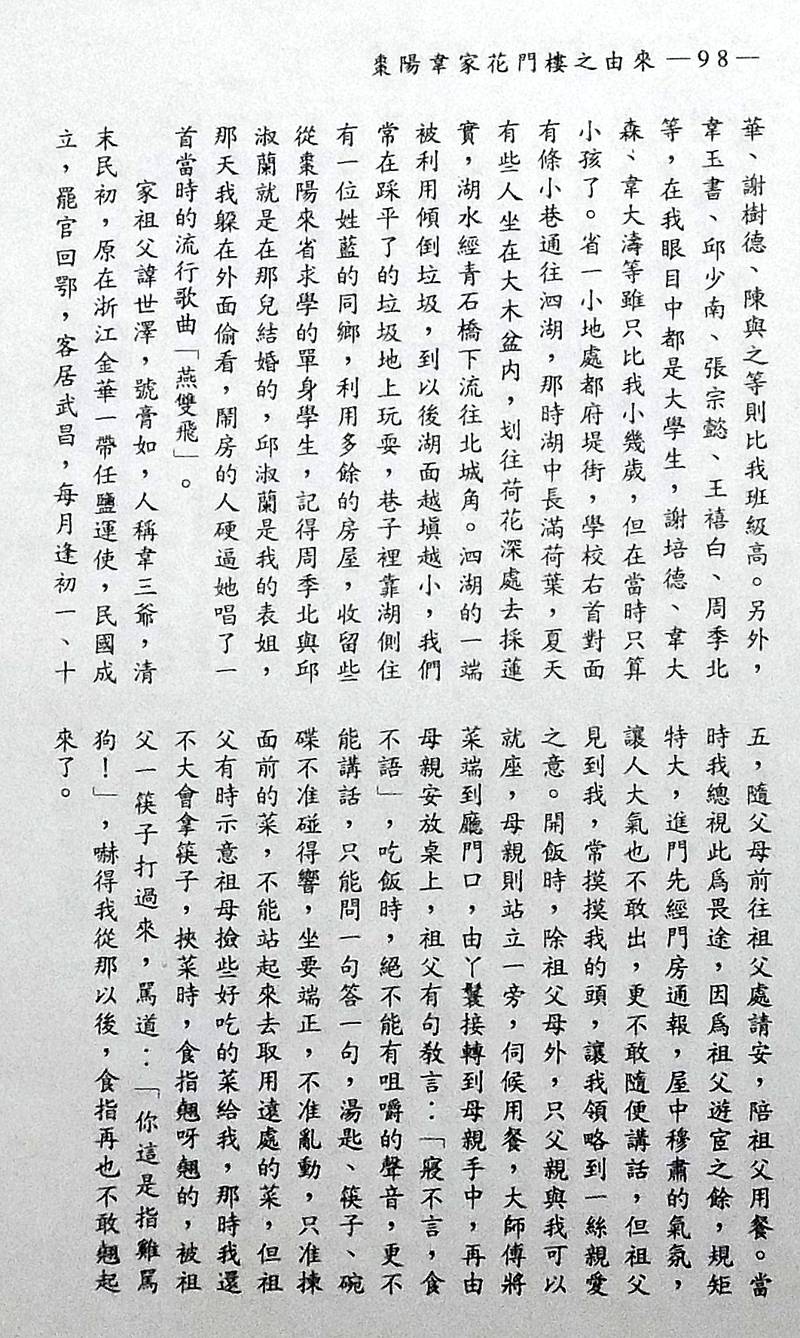 棗陽韋家花門樓之由來 —98—
華、謝樹德、陳與之等則比我班級高。另外，
韋玉書、邱少南、張宗懿、王禧白、周季北
等，在我眼目中都是大學生，謝培德、韋大
森、韋大濤等雖只比我小幾歲，但在當時只算
小孩了。省一小地處都府堤街，學校右首對面
有條小巷通往泗湖，那時湖中長滿荷葉，夏天
有些人坐在大木盆內，划往荷花深處去採蓮
實，湖水經青石橋下流往北城角。泗湖的一端
被利用傾倒垃圾，到以後湖面越塡越小，我們
常在踩平了的垃圾地上玩耍，巷子裡靠湖側住
有一位姓藍的同鄉，利用多餘的房屋，收留些
從棗陽來省求學的單身學生，記得周季北與邱
淑蘭就是在那兒結婚的，邱淑蘭是我的表姐，
那天我躲在外面偷看，鬧房的人硬逼她唱了一
首當時的流行歌曲「燕雙飛」。
家祖父諱世澤，號膏如，人稱韋三爺，清
末民初，原在浙江金華一帶任鹽運使，民國成
立，罷官回鄂，客居武昌，每月逢初一、十
五，隨父母前往祖父處請安，陪祖父用餐。當
時我總視此爲畏途，因爲祖父遊宦之餘，規矩
特大，進門先經門房通報，屋中穆肅的氣氛，
讓人大氣也不敢出，更不敢隨便講話，但祖父
見到我，常摸摸我的頭，讓我領略到一絲親愛
之意。開飯時，除祖父母外，只父親與我可以
就座，母親則站立一旁，伺候用餐，大師傅將
菜端到廳門口，由丫鬟接轉到母親手中，再由
母親安放桌上，祖父有句教言：「寢不言，食
不語」，吃飯時，絕不能有咀嚼的聲音，更不
能講話，只能問一句答一句，湯匙、筷子、碗
碟不准碰得響，坐要端正，不准亂動，只准揀
面前的菜，不能站起來去取用遠處的菜，但祖
父有時示意祖母撿些好吃的菜給我，那時我還
不大會拿筷子，挾菜時，食指翹呀翹的，被祖
父一筷子打過來，罵道：「你這是指雞罵
狗！」，嚇得我從那以後，食指再也不敢翹起
來了。